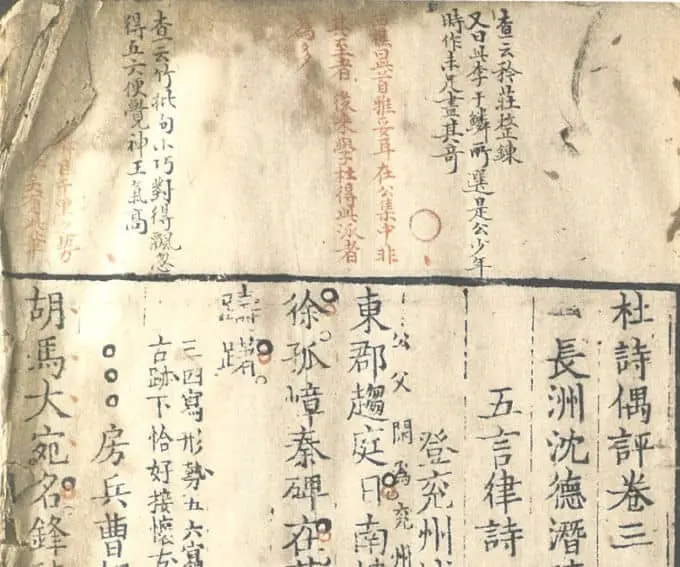 查云矜莊整鍊
又曰與李于鱗所選是公少年
時作未足盡其奇
四聯 首雅妥耳在公集中非
其至者後來學杜得此派者
為多
查云竹批句小巧對得飄忽
得五六便覺神王氣高
杜詩偶評卷三
長洲沈德潛
五言律詩
登兗州
公父閑為兗州
東郡趨庭日南
徐孤嶂秦碑在
躊躇
三四寫形勢五六寫
古跡下恰好接懷古
房兵曹
胡馬大宛名鋒